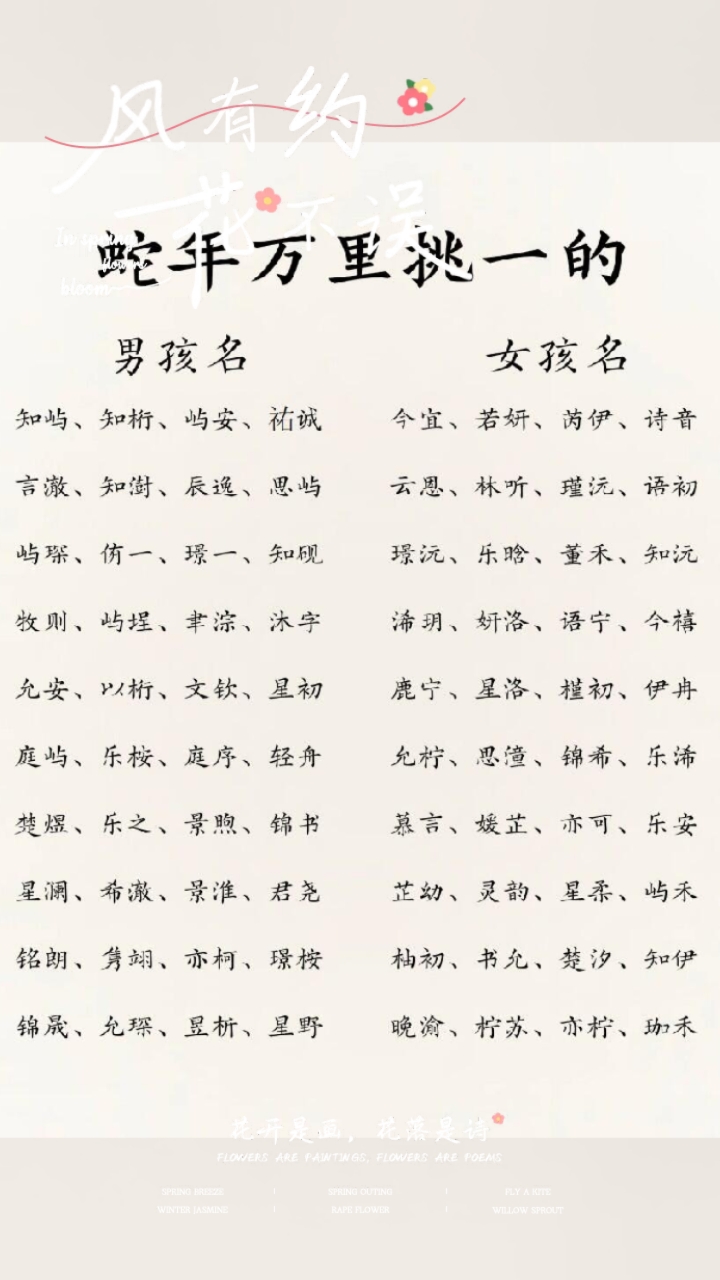 风有约
花不误
In spring
flowers
bloom
蛇年万里挑一的
男孩名 女孩名
知屿、知桁、屿安、祐诚 今宜、若妍、芮伊、诗音
言澈、知澍、辰逸、思屿 云恩、林听、瑾沅、语初
屿琛、侑一、璟一、知砚 璟沅、乐晗、董禾、知沅
牧则、屿埕、聿淙、沐宇 浠玥、妍洛、语宁、今禧
允安、以桁、文钦、星初 鹿宁、星洛、槿初、伊冉
庭屿、乐桉、庭序、轻舟 允柠、思潼、锦希、乐浠
楚煜、乐之、景煦、锦书 慕言、媛芷、亦可、乐安
星澜、希澈、景淮、君尧 芷幼、灵韵、星柔、屿禾
铭朗、隽翊、亦柯、璟桉 柚初、书允、楚汐、知伊
锦晟、允琛、昱析、星野 晚渝、柠苏、亦柠、珈禾
花听是画，花落是诗
FLOWERS ARE PAINTINGS, FLOWERS ARE POEMS
SPRING BREEZE | SPRING OUTING | FLY A KITE
WINTER JASMINE | RAPE FLOWER | WILLOW SPROUT